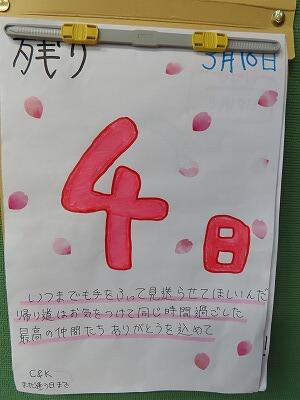 残り
3月10日
4日
いつまでも手をふって見送らせてほしいんだ
帰り道はお気をつけて同じ時間過ごした
最高の仲間たち ありがとうを込めて
C&K
また逢う日まで